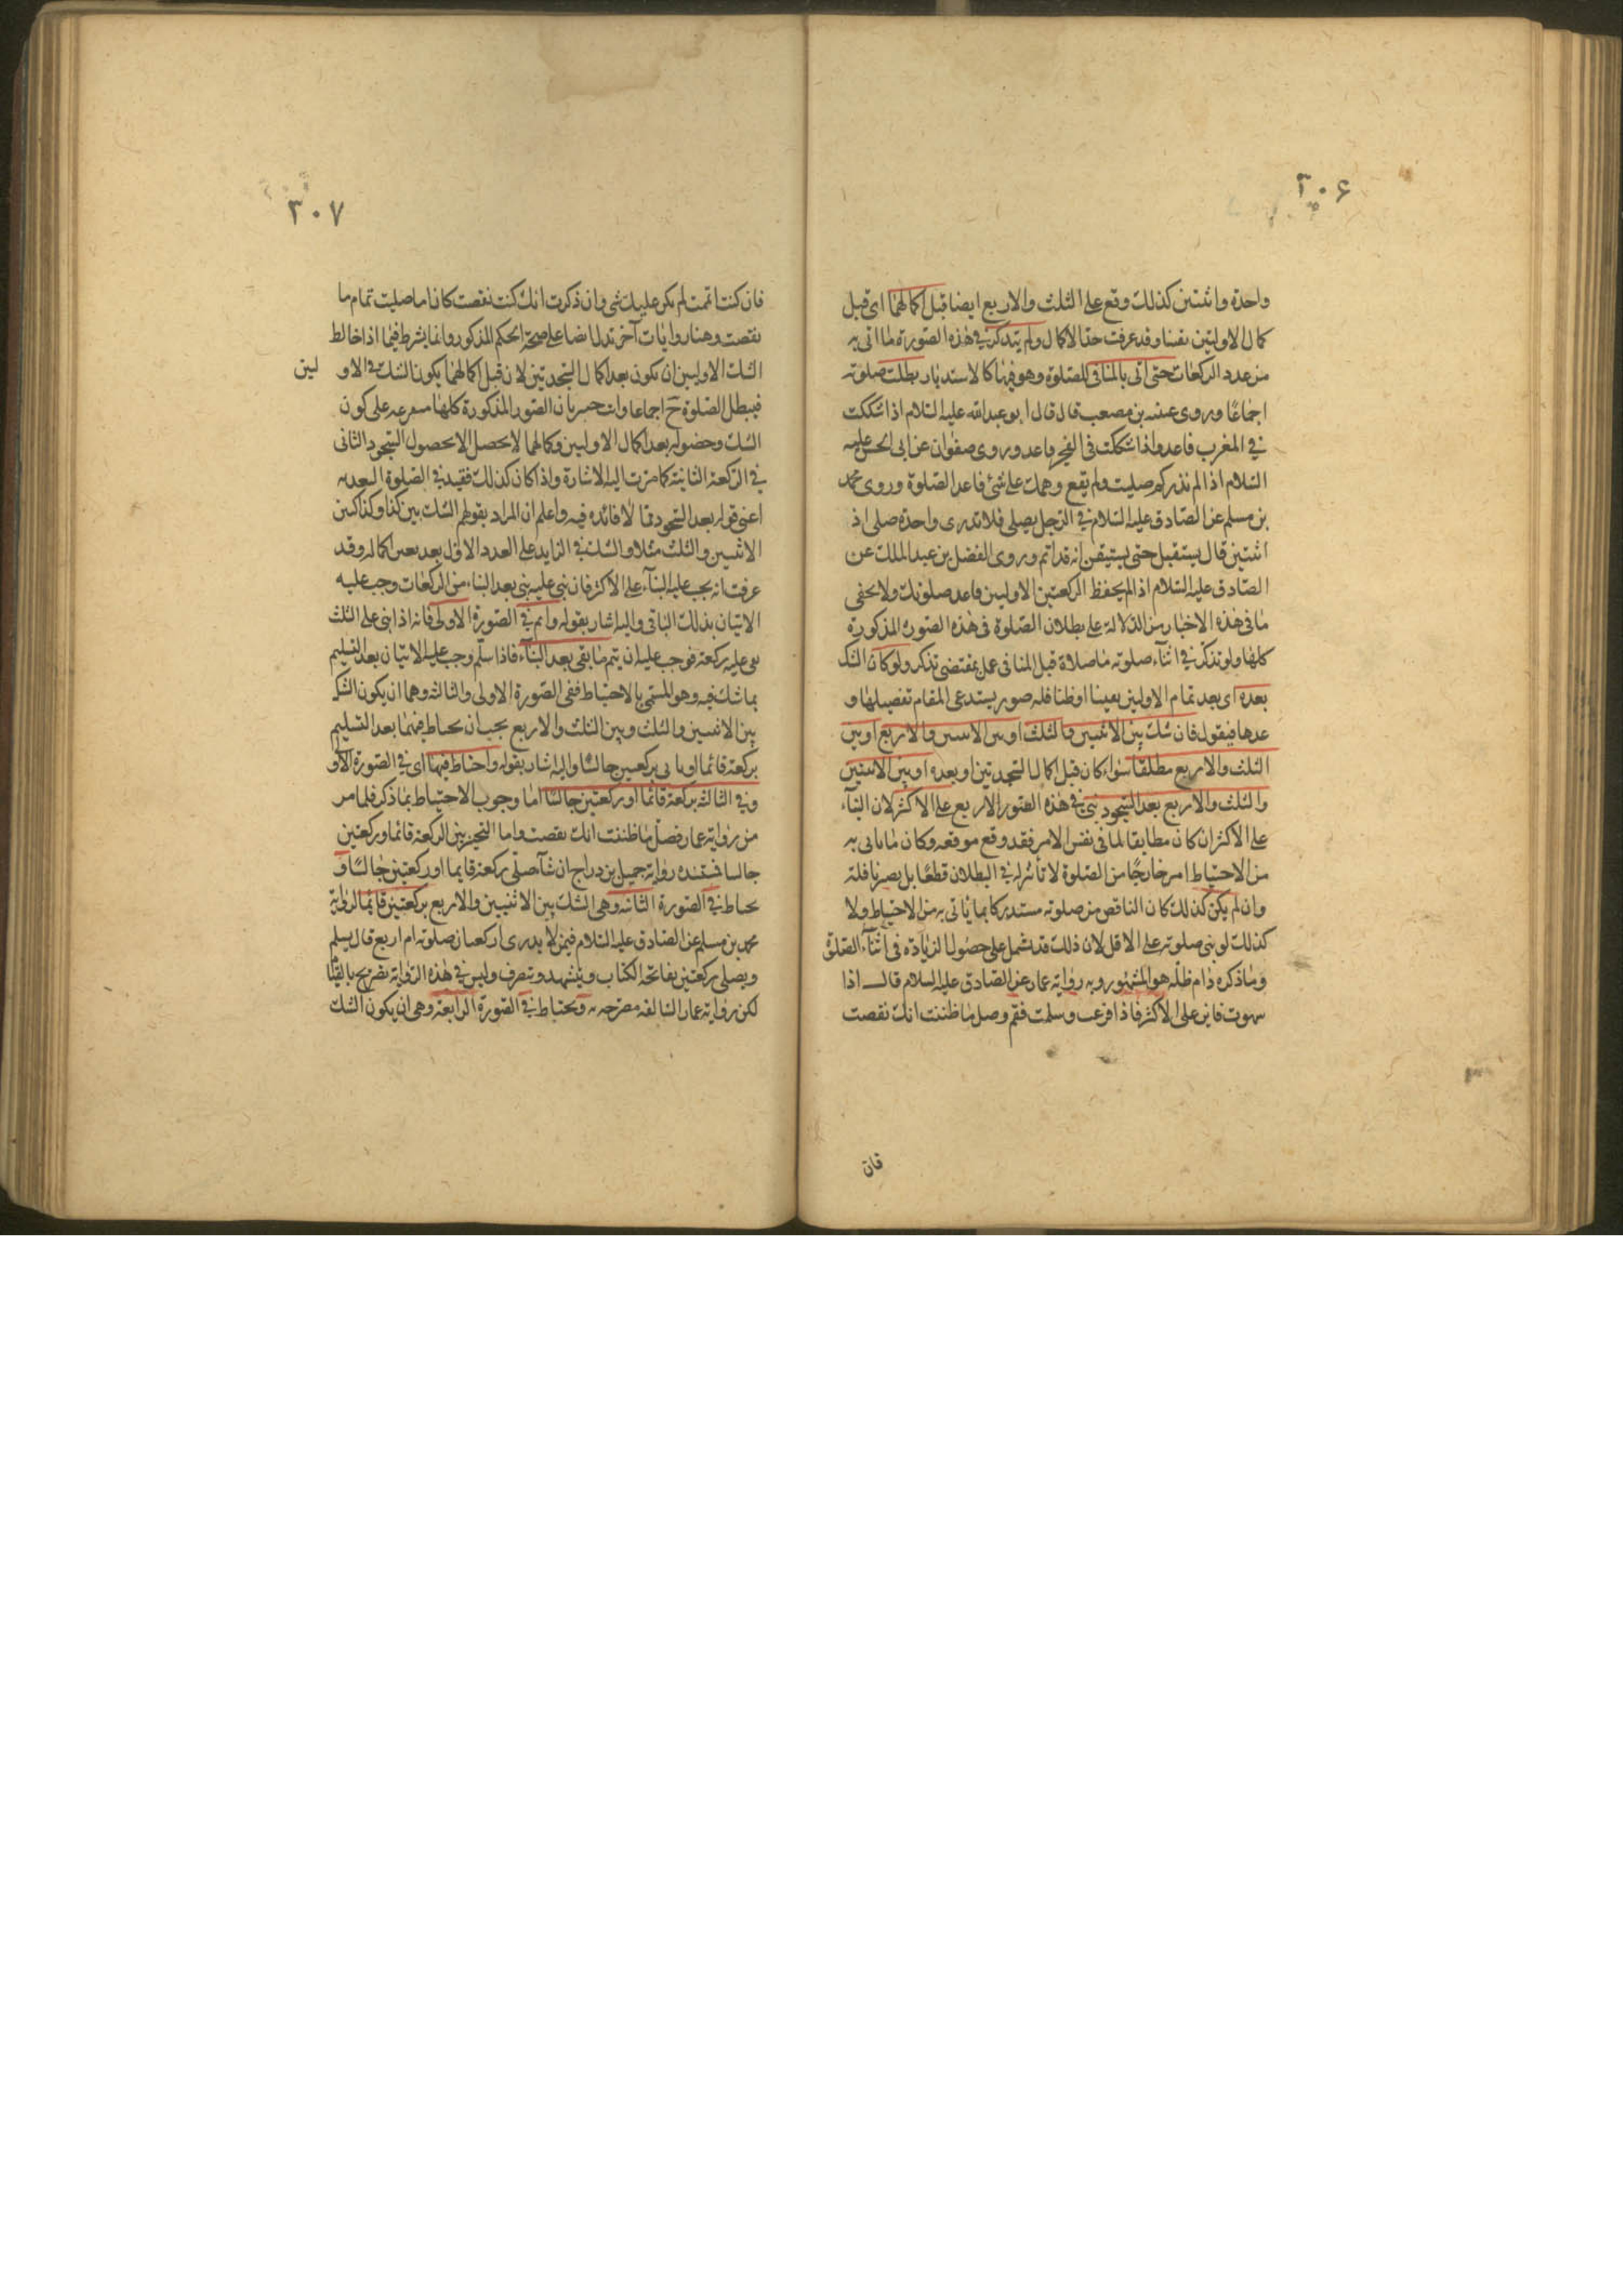 ٢٠۶
واحدة واثنتين كذلك وقع على الثلث والاربع ايضا قبل اكمالهما اى قبل
كمال الاوليين نفسا وقد عرفت حدّ الاكمال ولم يتذكر فى هذه الصورة ما اتى به
من عدد الركعات حتى اتى بالمنافى للصلوة وهو فيها كالاستدبار بطلت صلوته
اجماعًا وروى عنبسه بن مصعب قال قال ابو عبد الله عليه السّلام اذا شككت
فى المغرب فاعد واذا شككت فى الفجر فاعد وروى صفوان عن ابى الحسن عليه
السّلام اذا لم تدر كم صليت ولم يقع وهمك على شئ فاعد الصّلوة وروى محمد
بن مسلم عن الصّادق عليه السّلام فى الرّجل يصلى فلا تدرى واحدة صلى اذ
اثنتين قال يستقبل حتى يستيقن انه قد اتم وروى الفضل بن عبد الملك عن
الصّادق عليه السّلام اذا لم يحفظ الركعتين الاوليين فاعد صلوتك ولا يخفى
ما فى هذه الاخبار من الدّلالة على بطلان الصّلوة فى هذه الصورة المذكورة
كلها ولو تذكر فى اثناء صلوته ما صلاة قبل المنافى عمل بمقتضى تذكر ولو كان الشك
بعده اى بعد تمام الاوليين يعينا او ظنا فله صور يستدعى المقام تفصيلها و
عدها فيقول فان شك بين الاثنين والثلث او بين الاثنين والاربع او بين
الثلث والاربع مطلقا سواء كان قبل اكمال السّجدتين او بعده او بين الاثنين
والثلث والاربع بعد السّجود بنى فى هذه الصّور الاربع على الاكثر لان البناء
على الاكثر ان كان مطابقا لما فى نفس الامر فقد وقع موقعه وكان ما ياتى به
من الاحتياط امر خارجًا من الصّلوة لا تأثير له فى البطلان قطعًا بل يصير نافلة
وان لم يكن كذلك كان الناقص من صلوته مستدركا بما ياتى به من الاحتياط ولا
كذلك لو بنى صلوته على الاقل لان ذلك قد يشمل على حصول الزيادة فى اثناء الصّلوة
وما ذكره دام ظله هو المشهور وبه رواية عمار عن الصادق عليه السلام قال اذا
سهوت فابن على الاكثر فاذا فرغت وسلمت فقم وصل ما ظننت انك نقصت
فان
٣٠٧
فان كنت اتممت لم يكن عليك شى وان ذكرت انك كنت نقصت كان ما صليت تمام ما
نقصت وهنا روايات آخر تدل ايضا على صحّة الحكم المذكور وانما يشرط فيما اذا خالط
الشك الاوليين ان يكون بعد اكمال السّجدتين لان قبل اكمالهما يكون الشك فى الاو لين
فيبطل الصّلوة حَ اجماعا وانت خبير بان الصّور المذكورة كلها متفرعه على كون
الشك وحضوله بعد اكمال الاوليين وكمالهما لا يحصل الا بحصول السّجود الثانى
فى الرّكعة الثانية كما مرّت اليه الاشارة واذا كان كذلك فقيد فى الصّلوة البعديه
اعنى قوله بعد السّجود ممّا لا فائده فيه واعلم ان المراد بقولهم الشك بين كذا وكذا كبين
الاثنين والثلث مثلا والشك فى الزايد على العدد الاوّل بعد تعين اكماله وقد
عرفت انه يجب عليه البناء على الاكثر فان بنى عليه بنى بعد البناء من الركعات وجب عليه
الاتيان بذلك الباقى واليه اشار بقوله واتم فى الصورة الاولى فانه اذا بنى على الثلث
بقى عليه ركعة فوجب عليه ان يتم ما بقى بعد البناء فاذا سلّم وجب عليه الاتيان بعد التسليم
بما شك فيه وهو المسمى بالاحتياط ففى الصّورة الاولى والثالثه وهما ان يكون الشك
بين الاثنين والثلث وبين الثلث والاربع يجب ان يحتاط فيهما بعد التسليم
بركعة قائما او ياتى بركعتين جالسًا واليه اشار بقوله واحتاط فيها اى فى الصّورة الاو
وفى الثالثه بركعة قائمًا او ركعتين جالسًا امّا وجوب الاحتياط بما ذكر فلما مر
من رواية عمار فصل ما ظننت انك نقصت واما التخيير بين الركعة قائما وركعتين
جالسا فمستنده رواية جميل بن دراج ان شآء صلّى ركعة قايما او ركعتين جالسًا و
يحتاط فى الصّورة الثانيه وهى الشك بين الاثنيين والاربع بركعتين قائمًا لرواية
محمد بن مسلم عن الصّادق عليه السّلام فيمن لا يدرى اركعتان صلوته ام اربع قال يسلم
ويصلى ركعتين بفاتحة الكتاب ويتشهد وينصرف وليس فى هذه الرّواية تصريح بالقيام
لكن رواية عمار السّالفه مصرّحه به ويحتاط فى الصّورة الرّابعة وهى ان يكون الشك